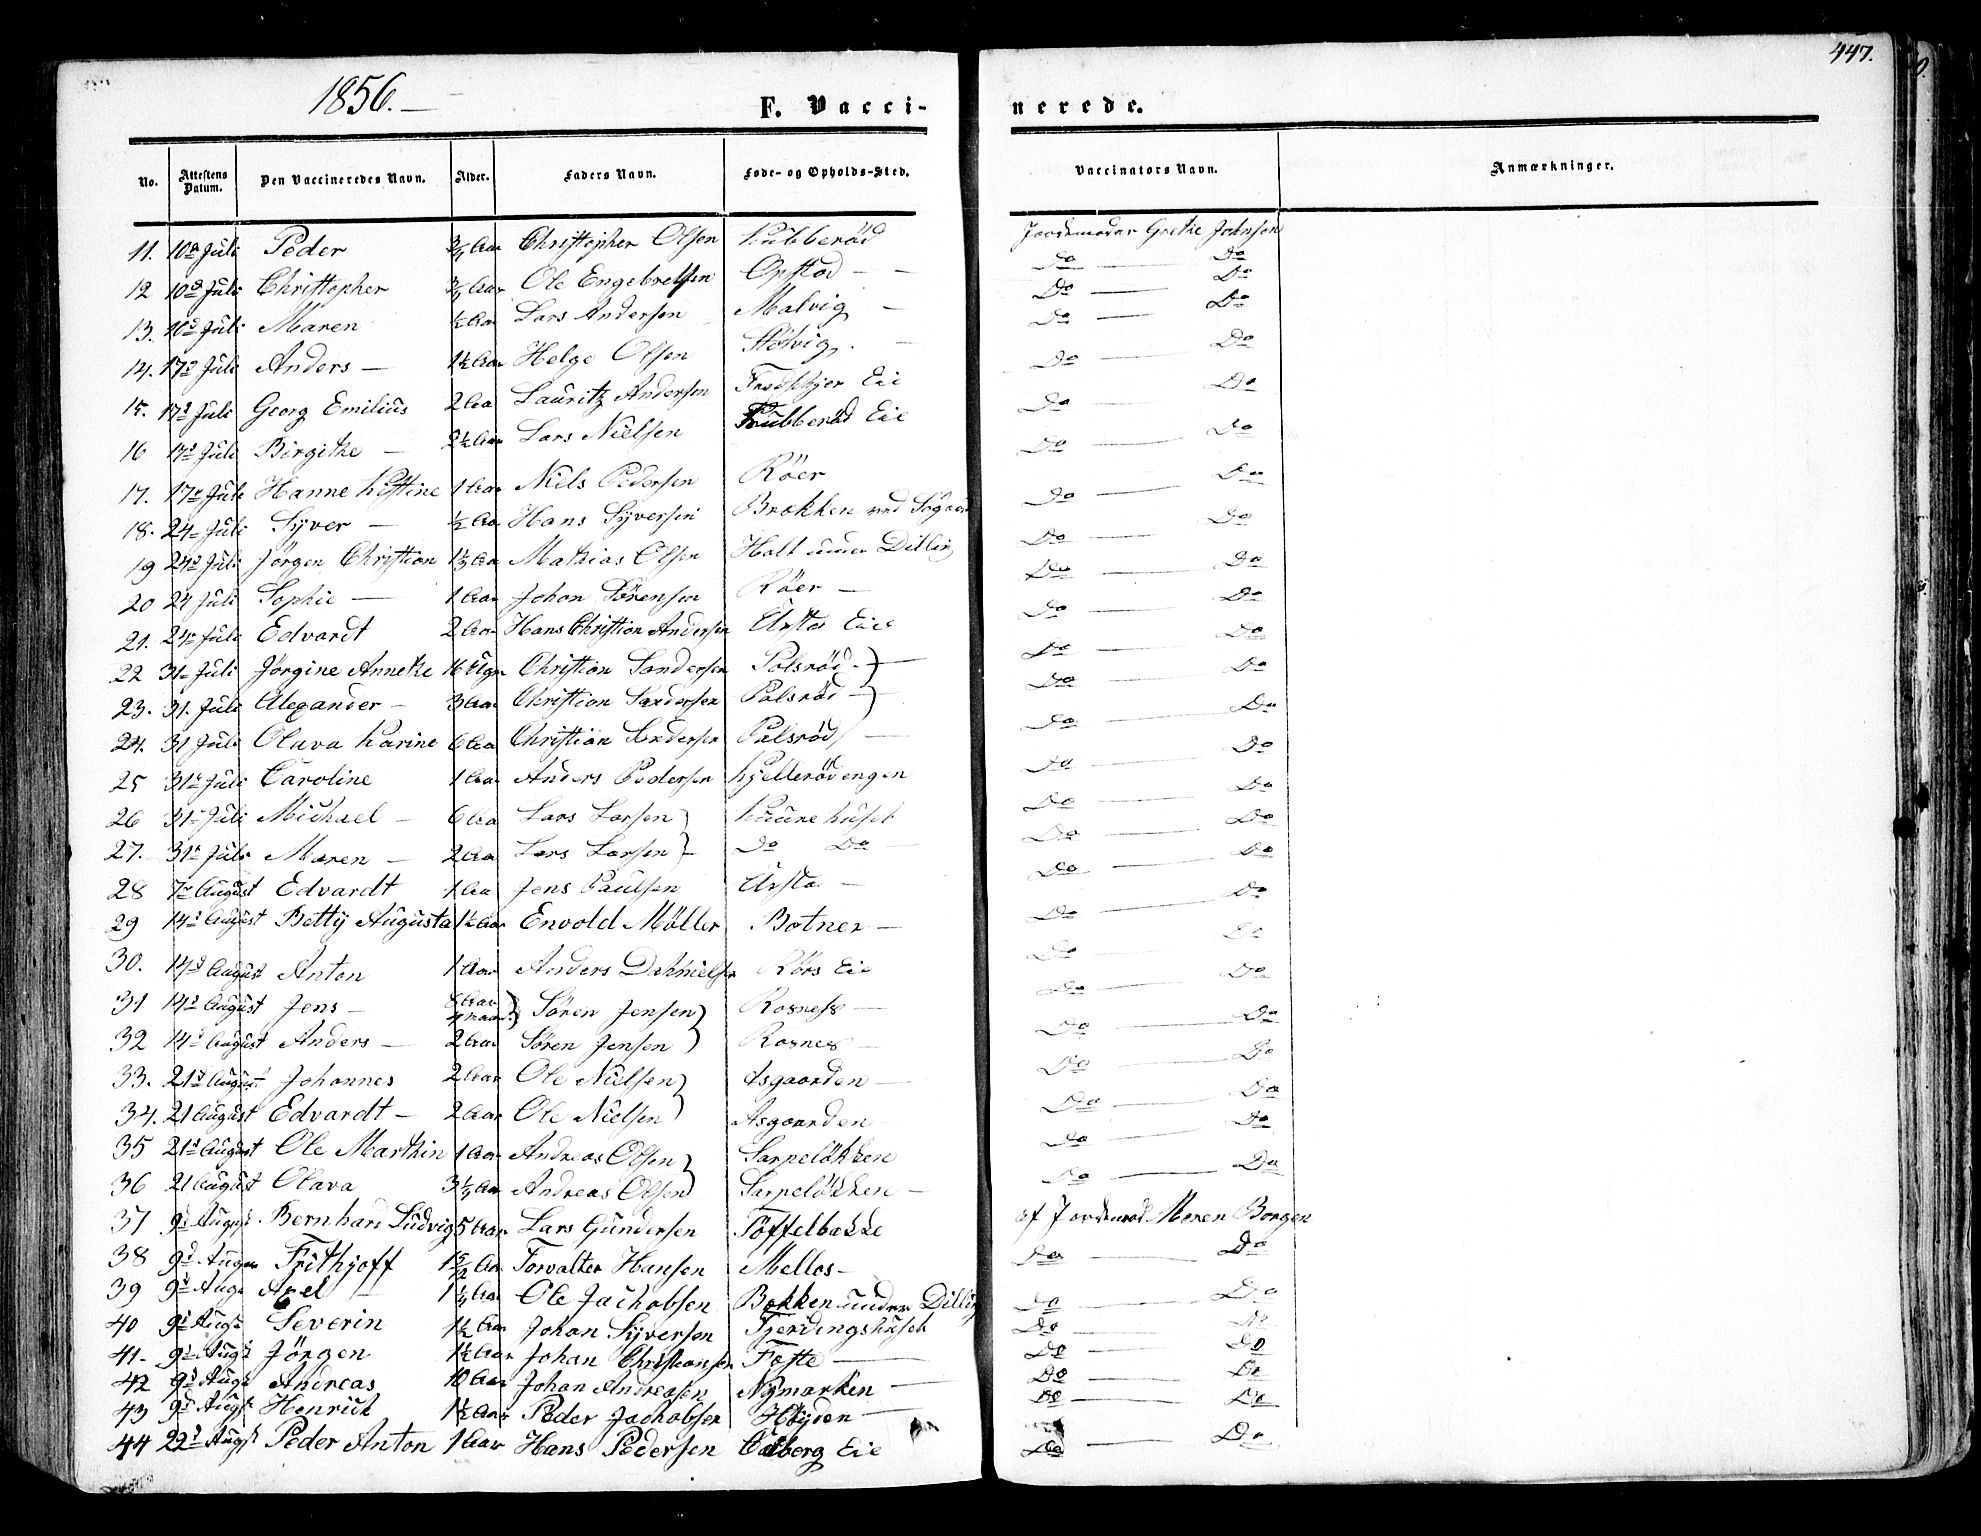 447.
1856.
F. Vaccinerede.
No. Attestens Datum. Den Vaccineredes Navn. Alder. Faders Navn. Føde- og Opholds-Sted. Vaccinators Navn. Anmærkninger.
11. 10d Juli Peder Aar Christopher Olsen Kubberød Jordemoder Grethe Johnsen
12 10d Juli Christopher Aar Ole Engebretsen Opstad - - Do — Do
13. 10d Juli Maren ½ Aar Lars Andersen Malvig - Do — Do
14. 17d Juli Anders — 1½ Aar Helge Olsen Stølvig. - Do — Do
15. 17d Juli Georg Emilius 2 Aa Lauritz Andersen Eie Do — Do
16 17d Juli Birgithe — 2½ Aar Lars Nielsen Kubberød Eie Do — Do
17. 17d Juli Hanne Kistine 1 Aar Niels Pedersen Röer Do — Do
18. 24 Juli Syver — ½ Aa Hans Syversen Brokken Do — Do
19 24d Juli Jørgen Christian Aa Mathias Olsen Holt under Dilling Do — Do
20 24 Juli Sophie — 1 Aar Johan Sörensen Röer — Do — Do
21. 24 Juli Edvardt 2 Aar Hans Christian Andersen Eie Do — Do
22 31 Juli Jørgine Annethe 16 Ugr Christian Sandersen Palsrød. — Do — Do
23. 31. Juli Alexander — 3 Aar Christian Sandersen Palsrød — Do — Do
24. 31 Juli Olava Karine 6 Aa Christian Sandersen Palsrød — Do — Do
25 31 Juli Caroline 1 Aar Anders Pedersen Kjellerødengen Do — Do
26 31 Juli Michael — 6 Aa Lars Larsen Do — Do
27. 31 Juli Maren — 2 Aa Lars Larsen Do Do Do — Do
28 7 August Edvardt 1 Aa Jens Paulsen — Do — Do
29 14d August Betty Augusta 1½ Aar Envold Møller Botner — Do — Do
30. 14d August Anton 1 Aar Anders Rørs Eie Do — Do
31 14d August Jens — 8 Aar 4 maan. Søren Jensen Rosness — Do — Do
32 14 August Anders — 2 Aar Søren Jensen Rosnes — Do — Do
33. 21d August Johannes 2 Aar Ole Nielsen Asgaarden — Do — Do
34. 21 August Edvardt — 2 Aar Ole Nielsen Asgaarden Do — Do
35 21d August Ole Marthin 1 Aar Andreas Olsen Sarpeløkken Do — Do
36 21 August Olava Aar Andreas Olsen Sarpeløkken — Do — Do
37 9d August Bernhard Ludvig 5 Aar Lars Gundersen Töffelbakke af Jordemod. Maren Borgen
38 9d Augu Frithjoff Aa Torvalter Hansen Mellos — Do — Do
39 9d Augs Axel Aar Ole Jachobsen Bakken under Dilling Do — Do
40 9d Augs Severin 1½ Aar Johan Syversen Fjerdingshuset Do — Do
41. 9d Augst Jörgen 1½ Aar Johan Christiansen Foste — Do — Do
42 9d Augs Andreas 10 Aar Johan Andreasen Nymarken — Do — Do
43 9d Augst Henrick 1½ Aar Peder Jachobsen Höyden — Do — Do
44 22d Augst Peder Anton 1 Aar Hans Pedersen Eie Do — Do